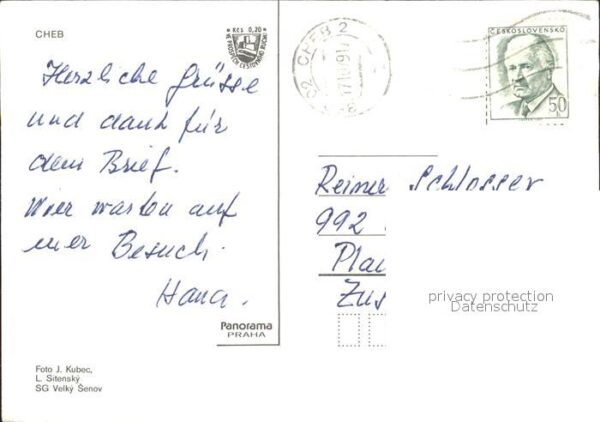 CHEB
Kčs 0,20
VE PROSPĚCH CESTOVNÍHO RUCHU
Herzliche grüsse
und dank für
dein Brief.
Wier warten auf
euer Besuch.
Hana.
Panorama
PRAHA
Foto J. Kubec,
L. Sitenský
SG Velký Šenov
CHEB 2
ČESKOSLOVENSKO
50
Reiner Schlosser
992
Plau
Zus
privacy protection
Datenschutz